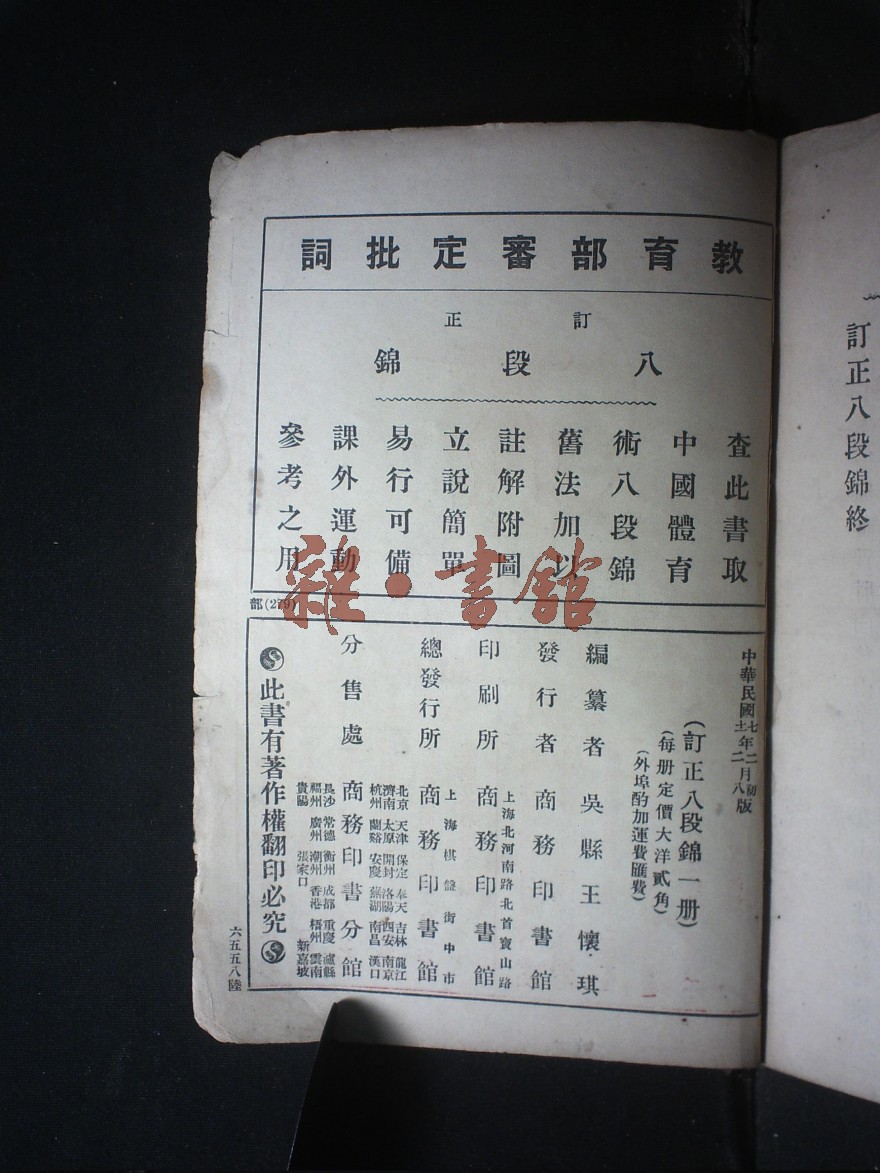 訂正八段錦終
教育部審定批詞
訂正
八段錦
查此書取
中國體育
術八段錦
舊法加以
註解附圖
立說簡單
易行可備
課外運動
參考之用
部(279)
雜·書館
中華民國七年二月初版
(訂正八段錦一册)
(每册定價大洋貳角)
(外埠酌加運費匯費)
編纂者 吳縣王懷琪
發行者 商務印書館
印刷所 上海北河南路北首寶山路 商務印書館
總發行所 上海棋盤街中市 商務印書館
分售處 商務印書分館
北京 天津 保定 奉天 吉林 龍江
濟南 太原 開封 洛陽 西安 南京
杭州 蘭谿 安慶 蕪湖 南昌 漢口
長沙 常德 衡州 成都 重慶 瀘縣
福州 廣州 潮州 香港 梧州 雲南
貴陽 張家口 新嘉坡
此書有著作權翻印必究
六五五八陸